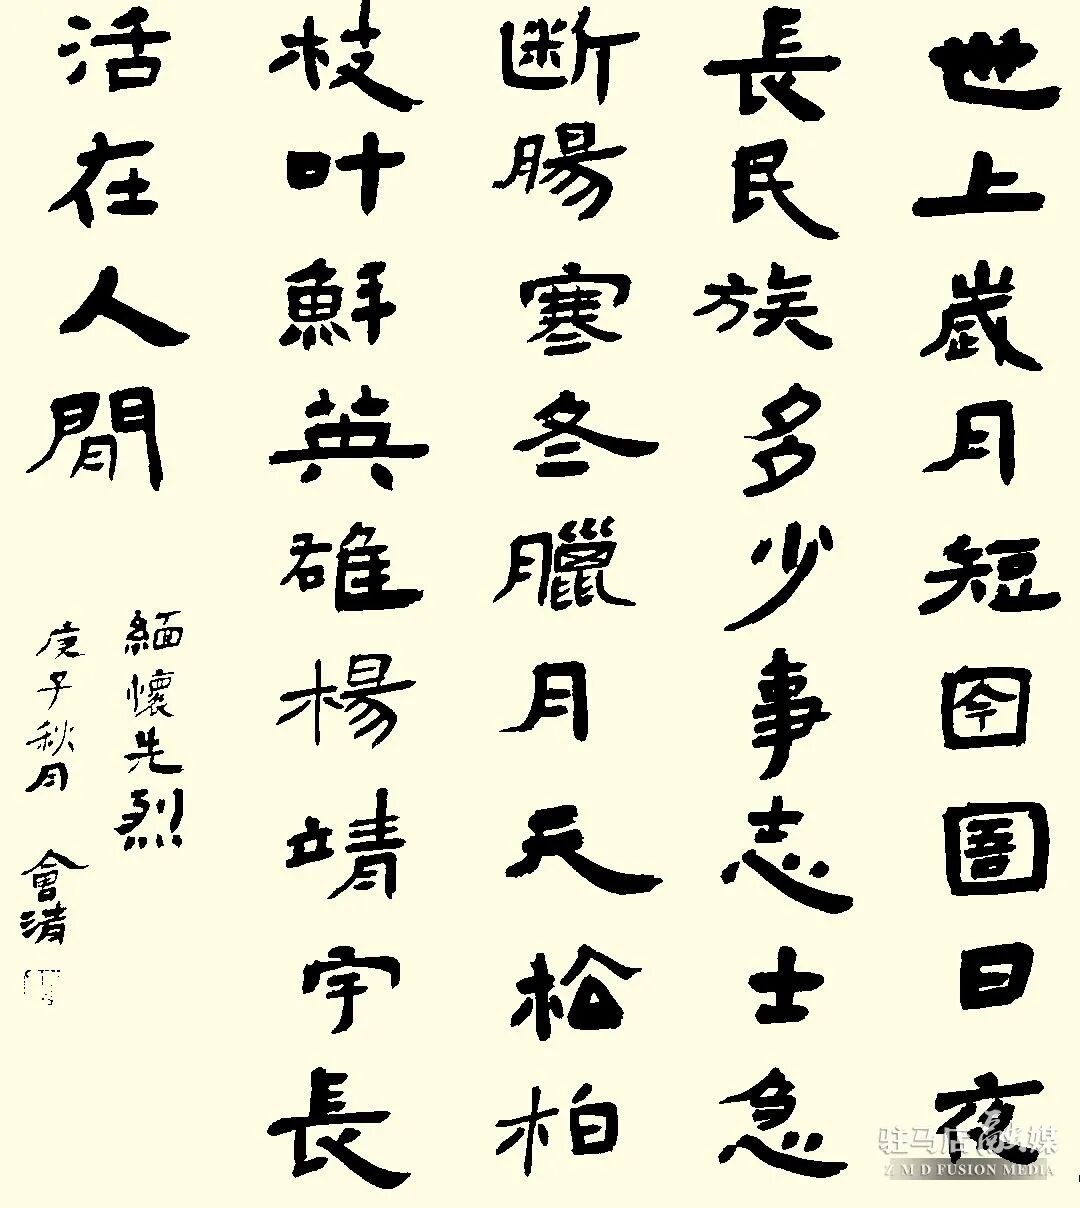 世上歲月短囹圄日夜
長民族多少事志士急
断腸寒冬臘月天松柏
枝叶鮮英雄楊靖宇長
活在人間
緬懷先烈
庚子秋月 會
驻马店融媒
Z M D FUSION MEDIA